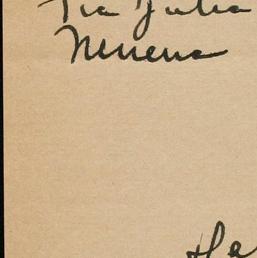 Tia Julia
Nenena
Ha